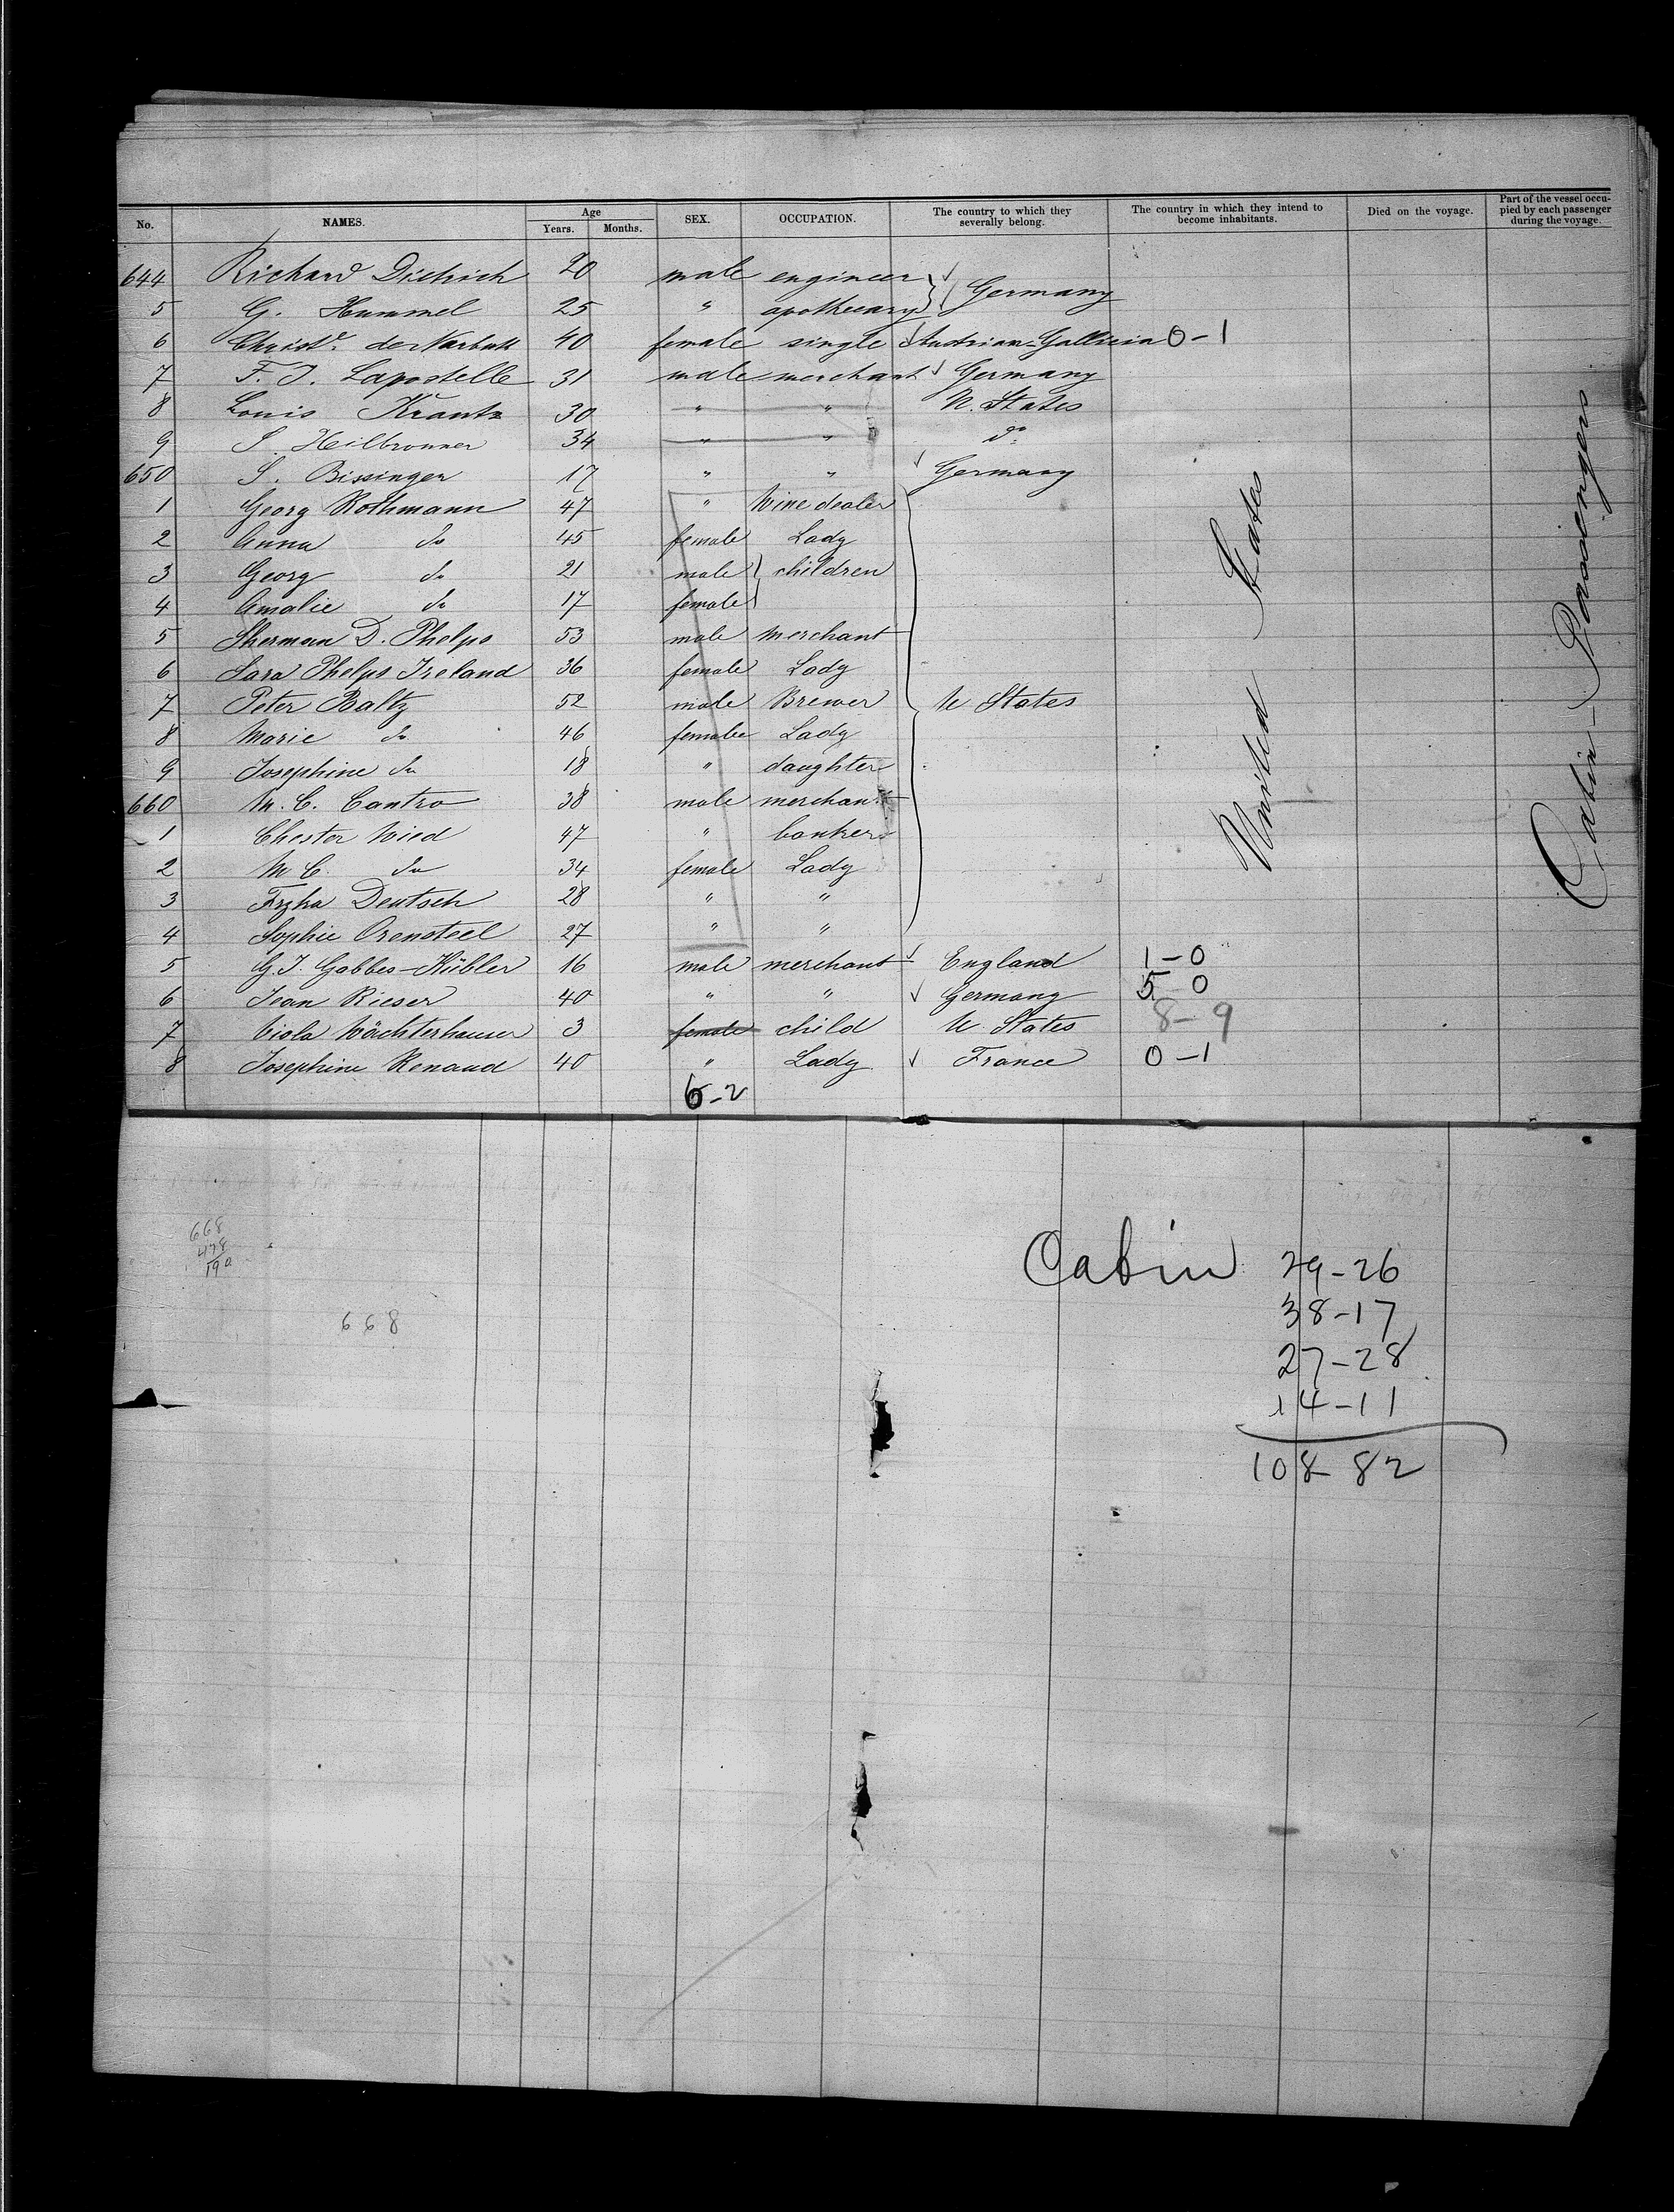 No. NAMES. Age Years. Months. SEX. OCCUPATION. The country to which they severally belong. The country in which they intend to become inhabitants. Died on the voyage. Part of the vessel occupied by each passenger during the voyage.
644 Richard Dietrich 20 male engineer Germany
5 G. Hummel 25 " apothecary
6 Christ. de Narbutt 40 female single Austrian-Gallicia 0-1
7 F. J. Lapostelle 31 male merchant Germany
8 Louis Krantz 30 " " U. States
9 S. Heilbronner 34 " " do
650 S. Bissinger 17 " " Germany
1 Georg Rothmann 47 " Wine dealer
2 Anna do 45 female Lady
3 Georg do 21 male children
4 Amalie do 17 female
5 Sherman D. Phelps 53 male merchant
6 Sara Phelps Ireland 36 female Lady
7 Peter Baltz 52 male Brewer U States
8 Marie do 46 female Lady
9 Josephine do 18 " daughter
660 M. C. Cantro 38 male merchant
1 Chester Wied 47 " banker
2 M C. do 34 female Lady
3 Deutsch 28 " "
4 Sophie Orensteel 27 " "
5 G. J. Gabbes-Hübler 16 male merchant England 1-0
6 Jean Rieser 40 " " Germany 5-0
7 Viola Wächterhauser 3 female child U. States 8-9
8 Josephine Renaud 40 " Lady France 0-1
6-2
United States
Cabin Passengers
668
478
190
668
Cabin 29-26
38-17
27-28
14-11
108-82